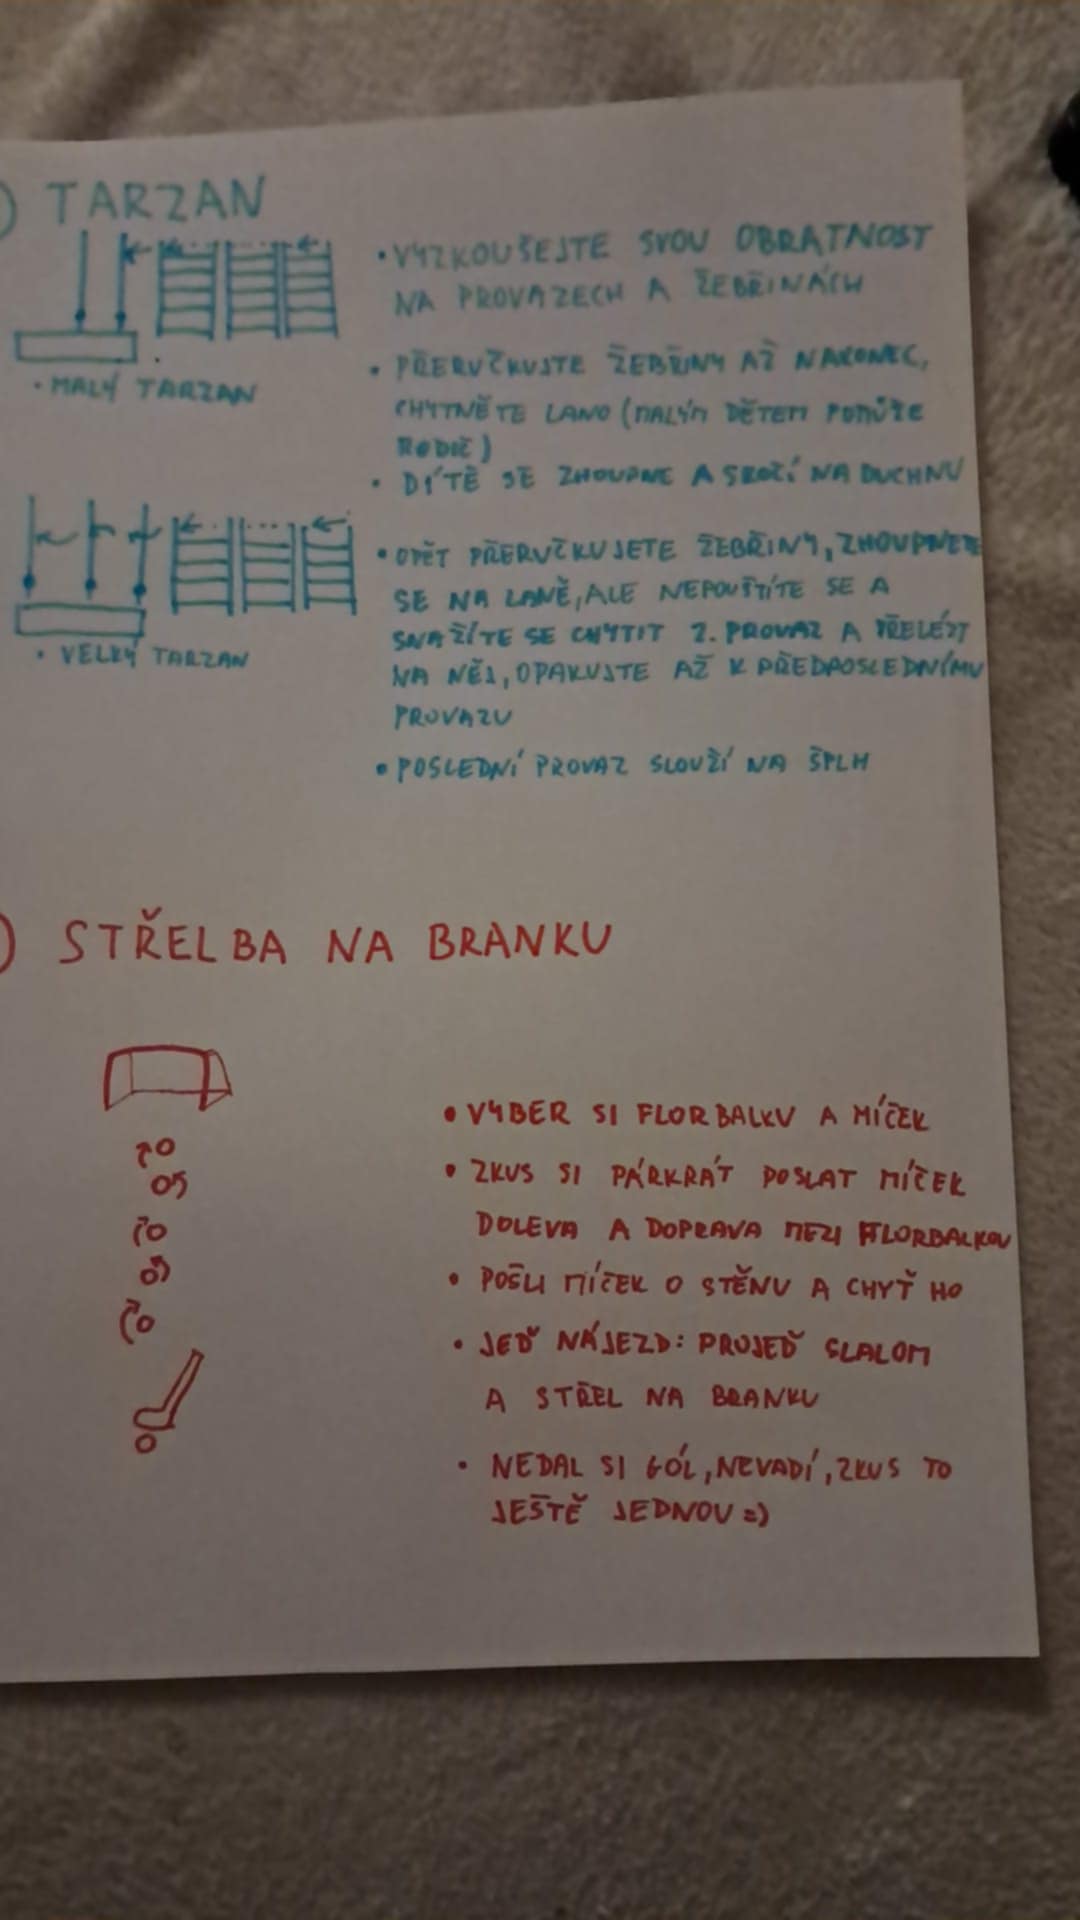 ) TARZAN
• VYZKOUŠEJTE SVOU OBRATNOST
NA PROVAZECH A ŽEBŘINÁCH
• MALÝ TARZAN
• PŘERUČKUJTE ŽEBŘINY AŽ NAKONEC,
CHYTNĚTE LANO (MALÝM DĚTEM POMŮŽE
RODIČ)
• DÍTĚ SE ZHOUPNE A SKOČÍ NA DUCHNU
• VELKÝ TARZAN
• OPĚT PŘERUČKUJETE ŽEBŘINY, ZHOUPNETE
SE NA LANĚ, ALE NEPOUŠTÍTE SE A
SNAŽÍTE SE CHYTIT 2. PROVAZ A PŘELÉZT
NA NĚJ, OPAKUJTE AŽ K PŘEDPOSLEDNÍMU
PROVAZU
• POSLEDNÍ PROVAZ SLOUŽÍ NA ŠPLH
) STŘELBA NA BRANKU
• VYBER SI FLORBALKU A MÍČEK
• ZKUS SI PÁRKRÁT POSLAT MÍČEK
DOLEVA A DOPRAVA MEZI FLORBALKOU
• POŠLI MÍČEK O STĚNU A CHYŤ HO
• JEĎ NÁJEZD: PROJEĎ SLALOM
A STŘEL NA BRANKU
• NEDAL SI GÓL, NEVADÍ, ZKUS TO
JEŠTĚ JEDNOU =)